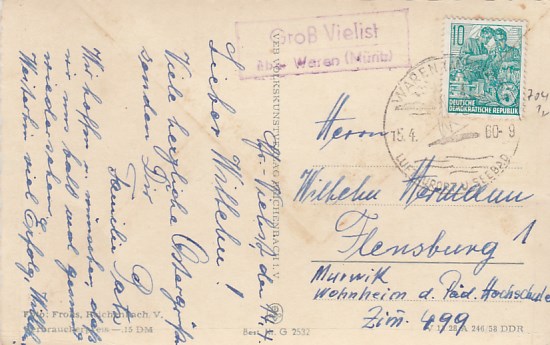 Gr.-Vielist den 14.4.
Lieber Wilhelm!
Viele herzliche Ostergrüße
senden Dir
Familie
Wir hoffen u. wünschen, daß
wir uns bald mal gesund
wiedersehen.
Weiterhin viel Erfolg, Wilhelm
Foto: Reichenbach, V.
Verbraucherpreis —,15 DM
Best.-Nr. G 2532
VEB VOLKSKUNSTVERLAG REICHENBACH I. V.
Groß Vielist
über Waren (Müritz)
10
DEUTSCHE
DEMOKRATISCHE REPUBLIK
5
WAREN
15.4. 60-9
LUFTKURORT SEEBAD
704
Herrn
Wilhelm Hermann
Flensburg 1
Mürwik
Wohnheim d. Päd. Hochschule
Zim. 499
A 246/58 DDR